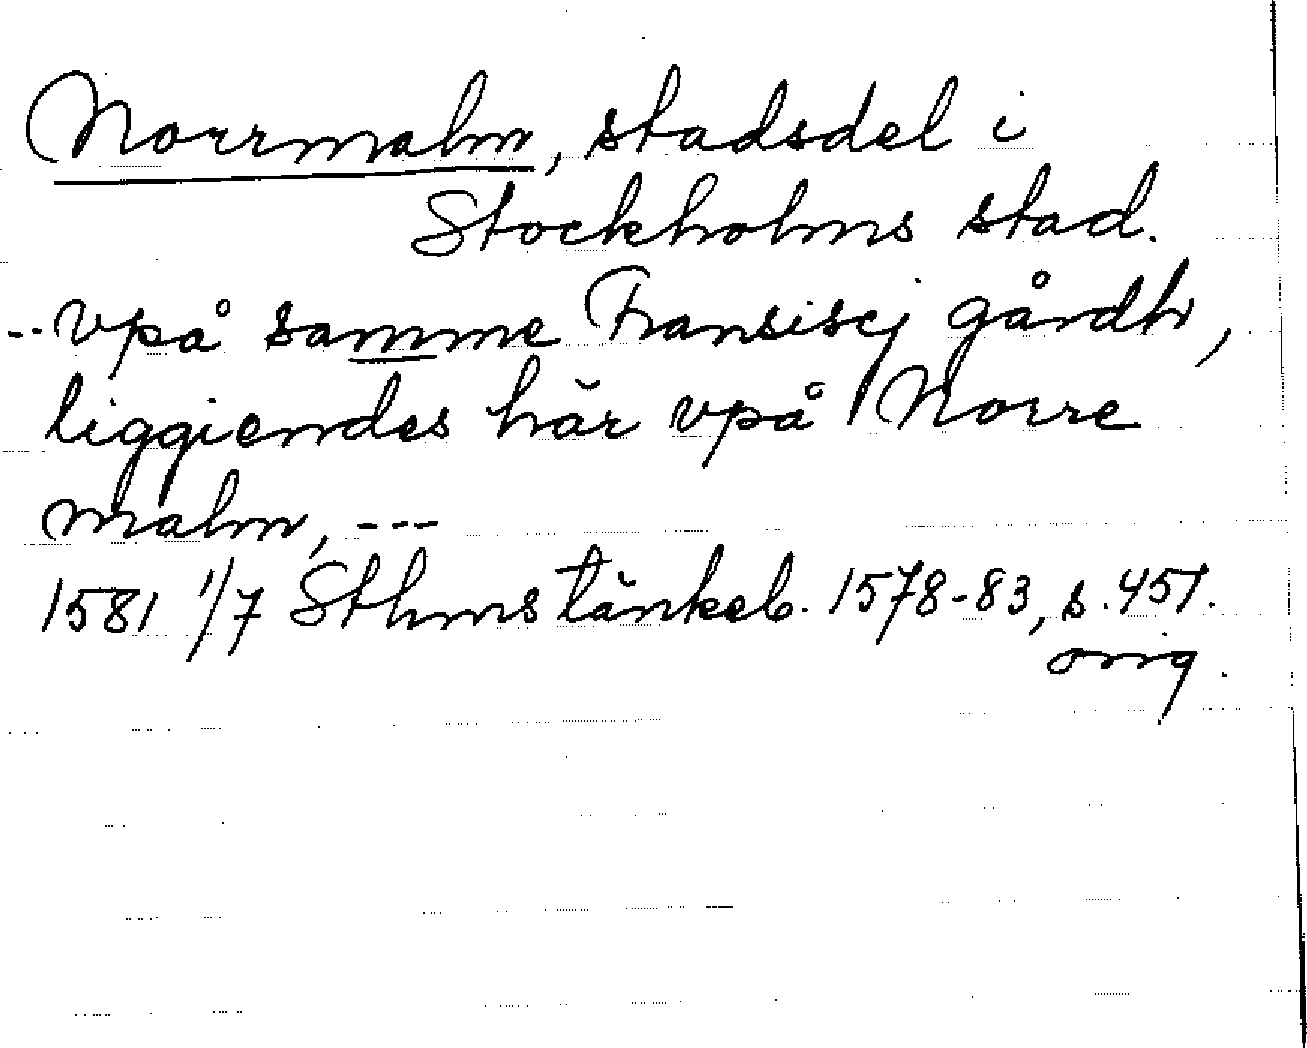 Norrmalm, stadsdel i
Stockholms stad.
--vpå samme Fransiscj gårdh,
liggiendes här vpå Norre
malm, ---
1581 1/7 Sthms tänkeb. 1578-83, s. 451.
orig.